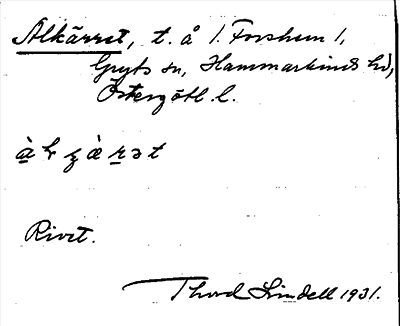 Alkärret, t. å /Forshem/,
Gryts sn, Hammarkinds hd,
Östergötl. l.
Rivet.
Thord Lindell 1931.